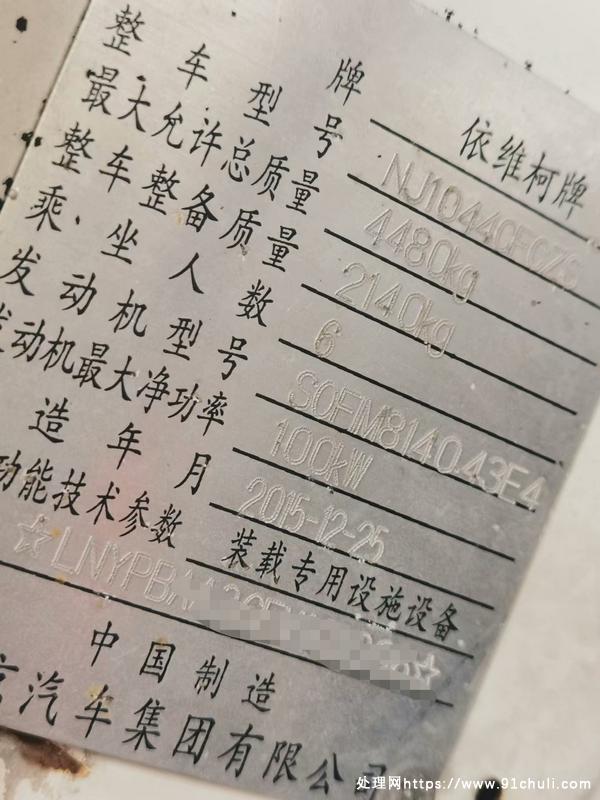 整车型号 牌 依维柯牌
最大允许总质量 NJ1044CFCZS
整车整备质量 4480kg
乘坐人数 2140kg
发动机型号 6
发动机最大净功率 SOFIM8140.43E4
造年月 100kW
功能技术参数 2015-12-25
装载专用设施设备
☆LNYPBA
中国制造
京汽车集团有限公司
处理网https://www.91chuli.com